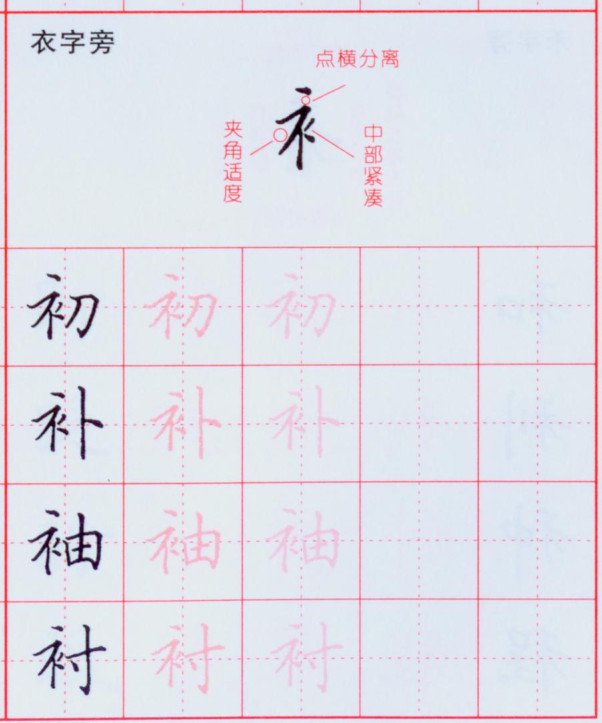 衣字旁
点横分离
衤
夹角适度
中部紧凑
初 初 初
补 补 补
袖 袖 袖
衬 衬 衬